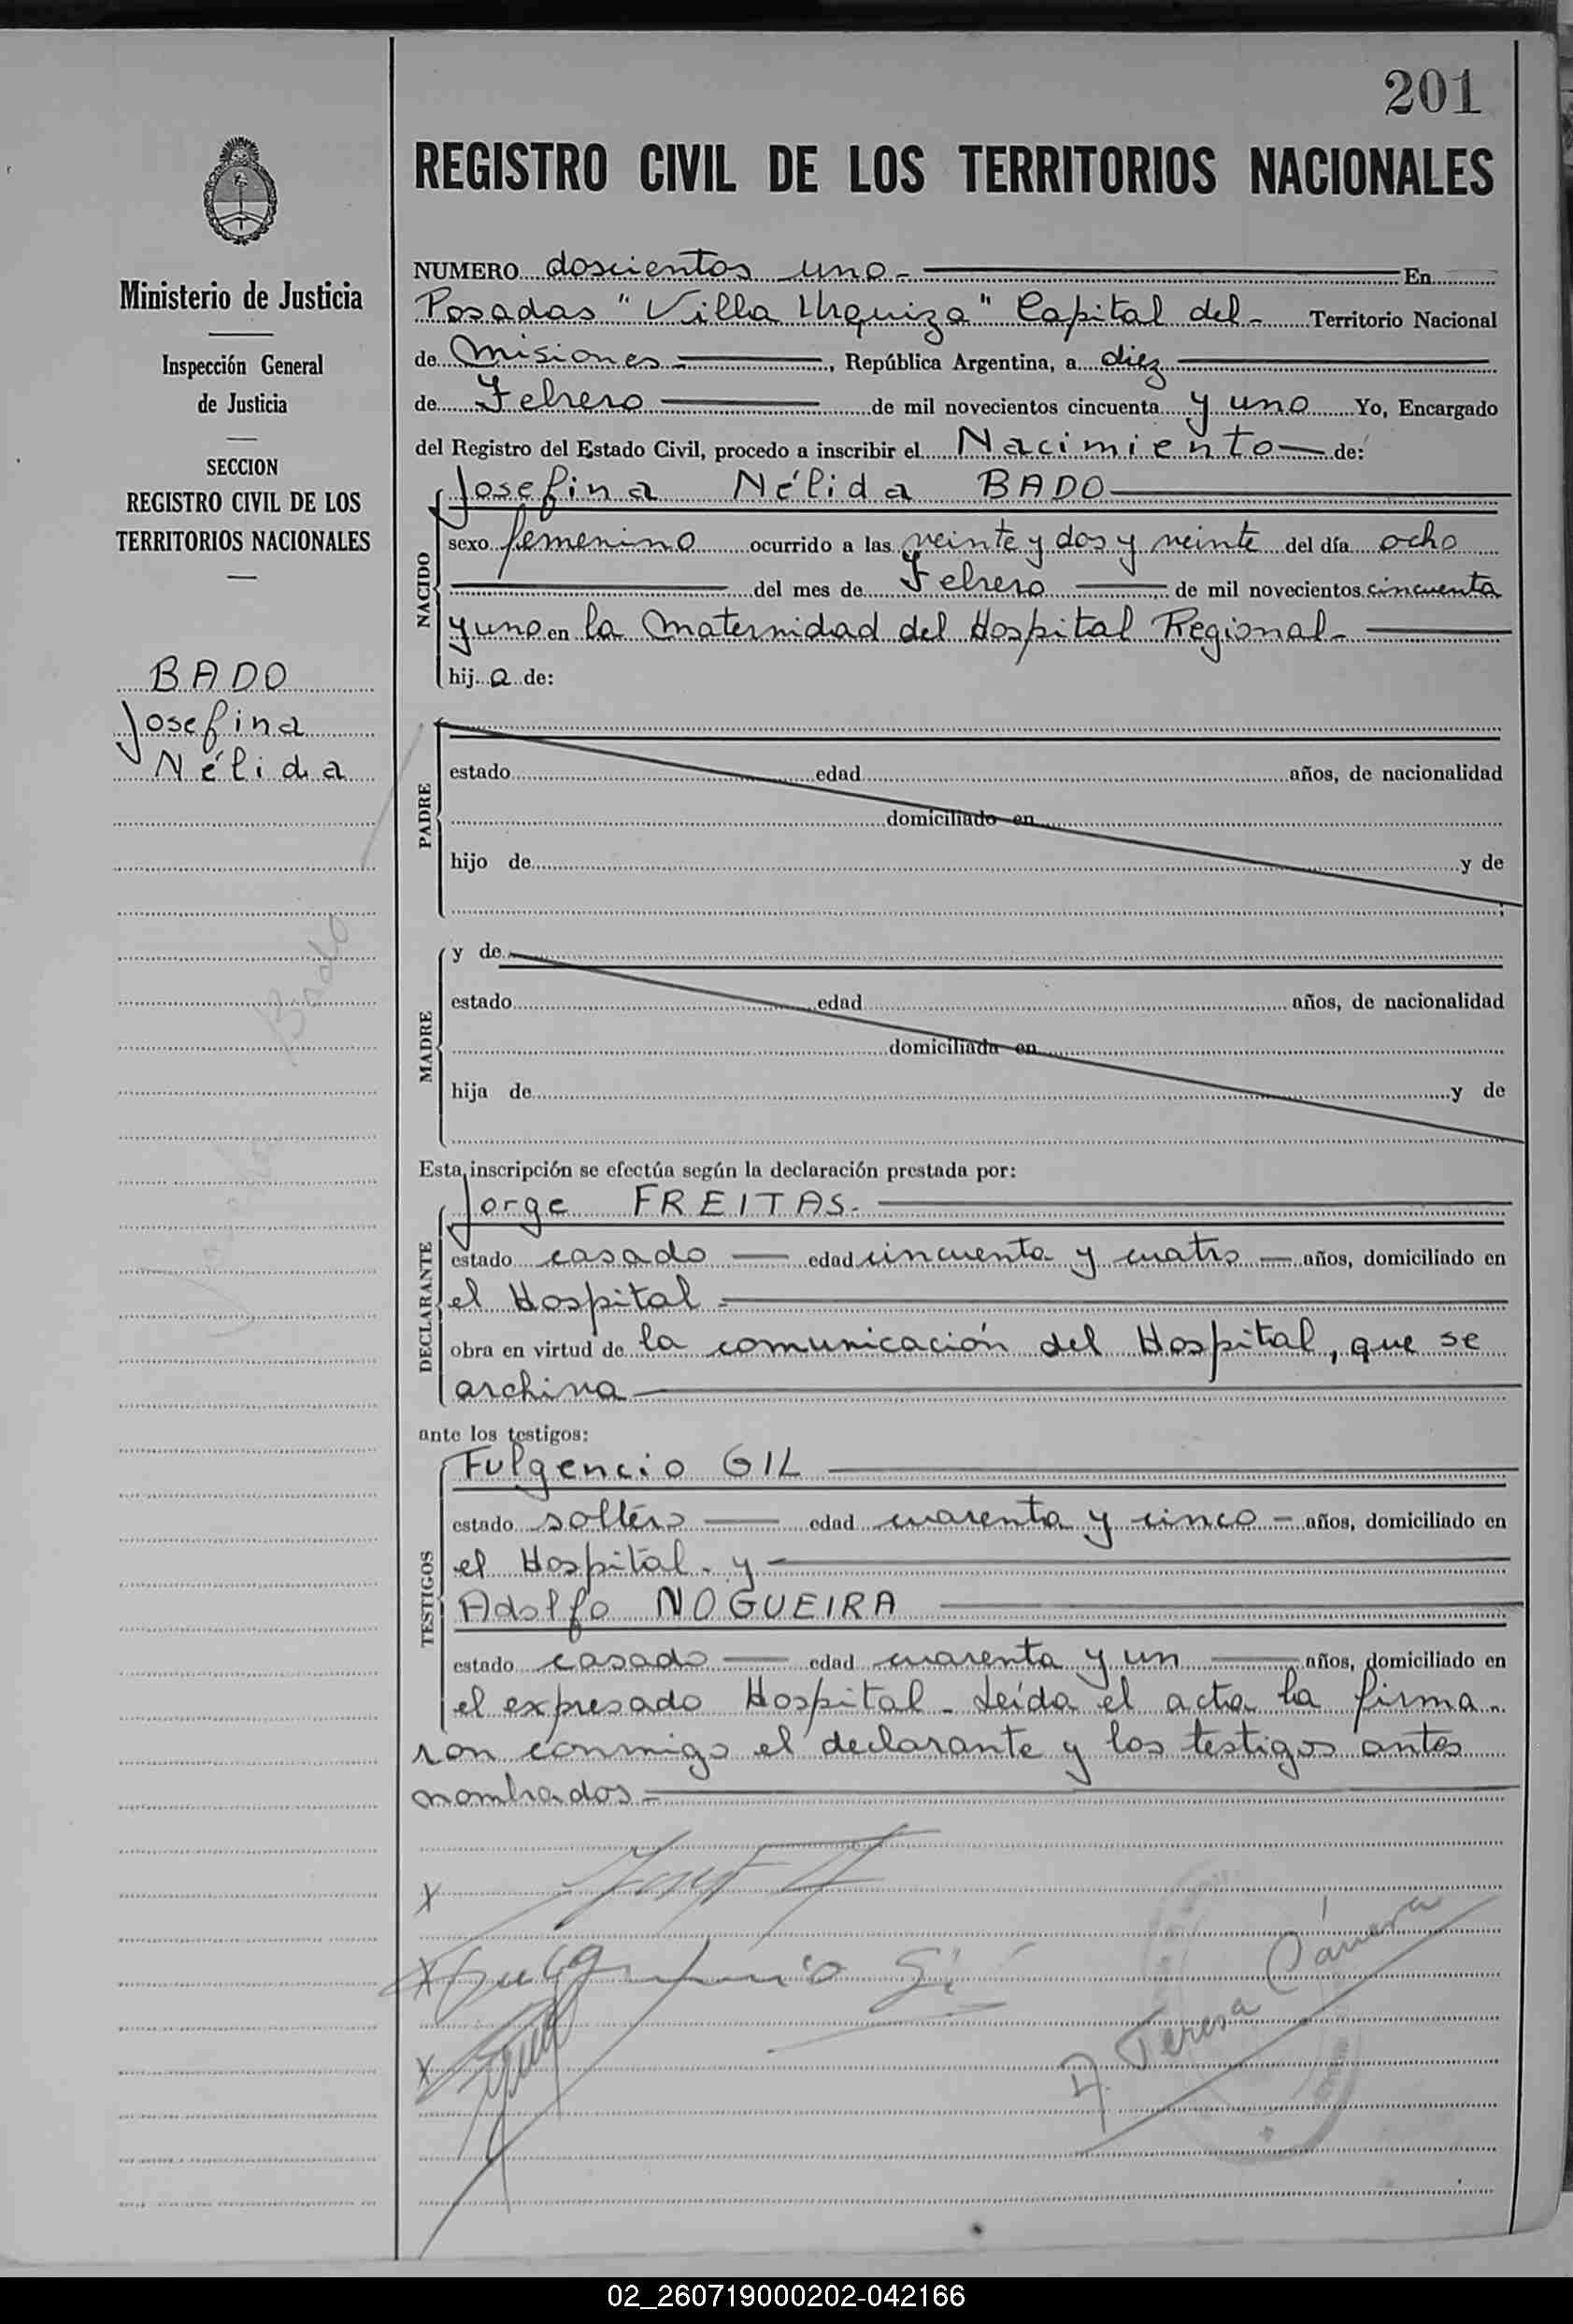 201
REGISTRO CIVIL DE LOS TERRITORIOS NACIONALES
Ministerio de Justicia
Inspección General
de Justicia
SECCION
REGISTRO CIVIL DE LOS
TERRITORIOS NACIONALES
BADO
Josefina
Nélida
Bado
NUMERO doscientos uno.- En
Posadas "Villa Urquiza" Capital del- Territorio Nacional
de Misiones, República Argentina, a diez
de Febrero de mil novecientos cincuenta y uno Yo, Encargado
del Registro del Estado Civil, procedo a inscribir el Nacimiento de:
NACIDO
Josefina Nélida BADO
sexo femenino ocurrido a las veinte y dos y veinte del día ocho
del mes de Febrero de mil novecientos cincuenta
y uno en la Maternidad del Hospital Regional.-
hij a de:
PADRE
estado edad años, de nacionalidad
domiciliado en
hijo de y de
;
MADRE
y de
estado edad años, de nacionalidad
domiciliada en
hija de y de
Esta inscripción se efectúa según la declaración prestada por:
DECLARANTE
Jorge FREITAS.
estado casado edad cincuenta y cuatro años, domiciliado en
el Hospital
obra en virtud de la comunicación del Hospital, que se
archiva
ante los testigos:
TESTIGOS
Fulgencio GIL
estado soltero edad cuarenta y cinco años, domiciliado en
el Hospital. y
Adolfo NOGUEIRA
estado casado edad cuarenta y un años, domiciliado en
el expresado Hospital - Leída el acta la firma-
ron conmigo el declarante y los testigos antes
nombrados
X
X Fulgencio Gil
X
A. Teresa Cámara
02_260719000202-042166